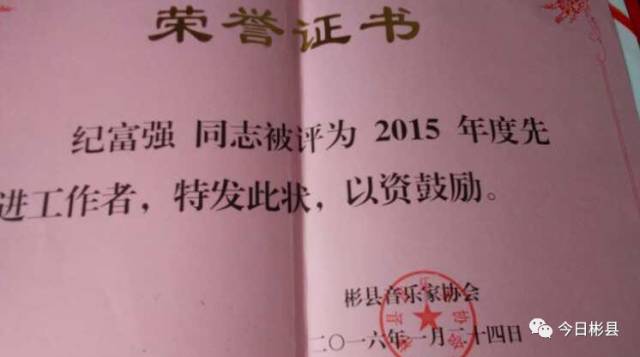 荣誉证书
纪富强 同志被评为 2015 年度先
进工作者，特发此状，以资鼓励。
彬县音乐家协会
二〇一六年一月二十四日
今日彬县